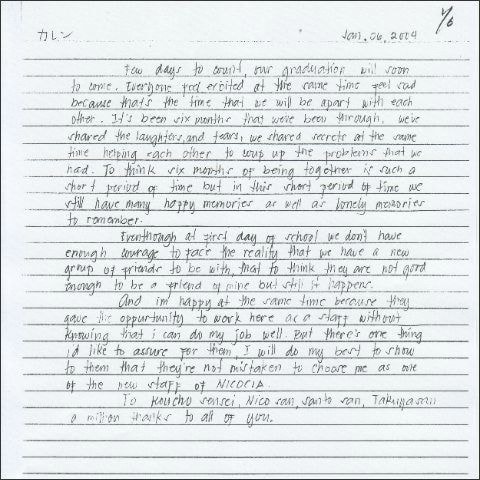 1/6
カレン
Jan. 06, 2004
Few days to count, our graduation will soon
to come. Everyone feel exited at the same time feel sad
because that's the time that we will be apart with each
other. It's been six months that we're been through, we've
shared the laughters, and tears, we shared secrets at the same
time helping each other to coup up the problems that we
had. To think six months of being together is such a
short period of time but in this short period of time we
still have many happy memories as well as lonely memories
to remember.
Eventhough at first day of school we don't have
enough courage to face the reality that we have a new
group of friends to be with, that to think they are not good
enough to be a friend of mine but still it happens.
And im happy at the same time because they
gave the opportunity to work here as a staff without
knowing that i can do my job well. But there's one thing
i'd like to assure for them, I will do my best to show
to them that they're not mistaken to choose me as one
of the new staff of NICOCIA.
To Kouchou sensei, Nico san, Santo san, Takuya san
a million thanks to all of you.